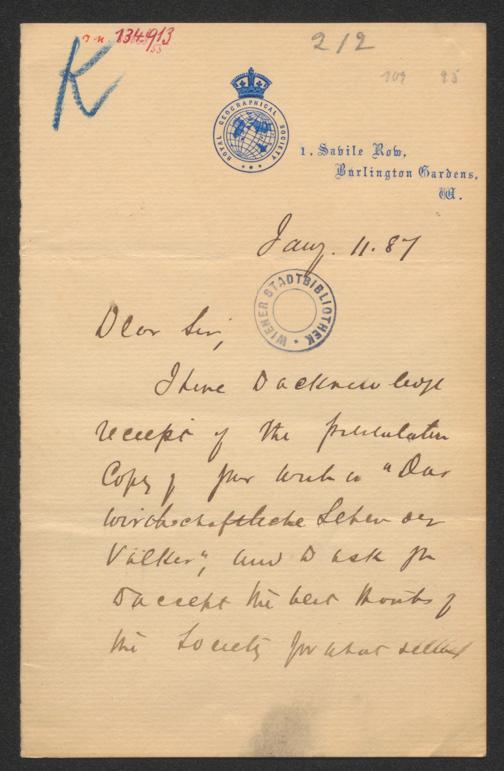 134913
53
K
212
109 95
ROYAL GEOGRAPHICAL SOCIETY
1, Savile Row,
Burlington Gardens,
W.
Jany. 11. 87
WIENER STADTBIBLIOTHEK
Dear Sir,
I have to acknowledge
receipt of the presentation
Copy of your work on "Das
wirthschaftliche Leben der
Völker", and to ask you
to accept the best thanks of
the Society for what